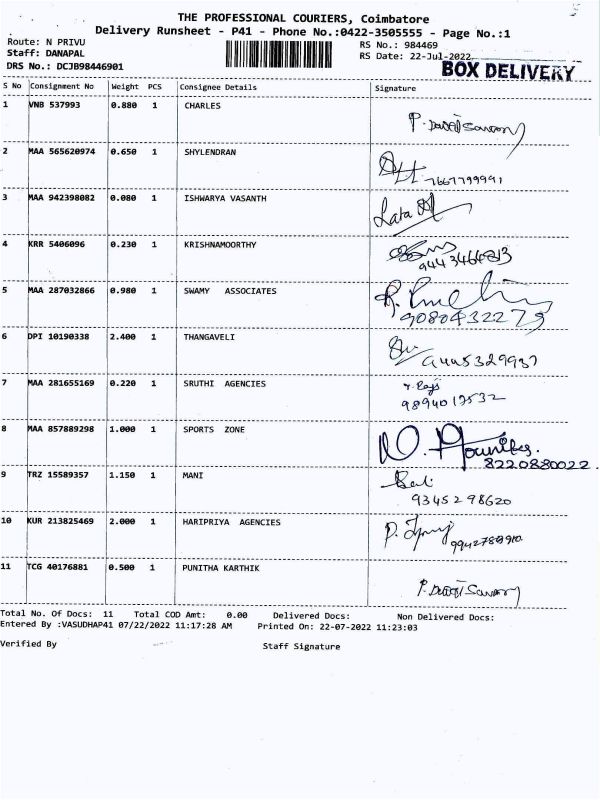 THE PROFESSIONAL COURIERS, Coimbatore
Delivery Runsheet - P41 - Phone No.:0422-3505555 - Page No.:1
Route: N PRIVU RS No.: 984469
Staff: DANAPAL RS Date: 22-Jul-2022
DRS No.: DCJB98446901 BOX DELIVERY
S No Consignment No Weight PCS Consignee Details Signature
1 VNB 537993 0.880 1 CHARLES
2 MAA 565620974 0.650 1 SHYLENDRAN
7667799991
3 MAA 942398082 0.080 1 ISHWARYA VASANTH
Lata
4 KRR 5406096 0.230 1 KRISHNAMOORTHY
5 MAA 287032866 0.980 1 SWAMY ASSOCIATES
9080432279
6 DPI 10190338 2.400 1 THANGAVELI
9445329937
7 MAA 281655169 0.220 1 SRUTHI AGENCIES
9894017532
8 MAA 857889298 1.000 1 SPORTS ZONE
8220880022
9 TRZ 15589357 1.150 1 MANI
9345298620
10 KUR 213825469 2.000 1 HARIPRIYA AGENCIES
11 TCG 40176881 0.500 1 PUNITHA KARTHIK
Total No. Of Docs: 11 Total COD Amt: 0.00 Delivered Docs: Non Delivered Docs:
Entered By :VASUDHAP41 07/22/2022 11:17:28 AM Printed On: 22-07-2022 11:23:03
Verified By Staff Signature